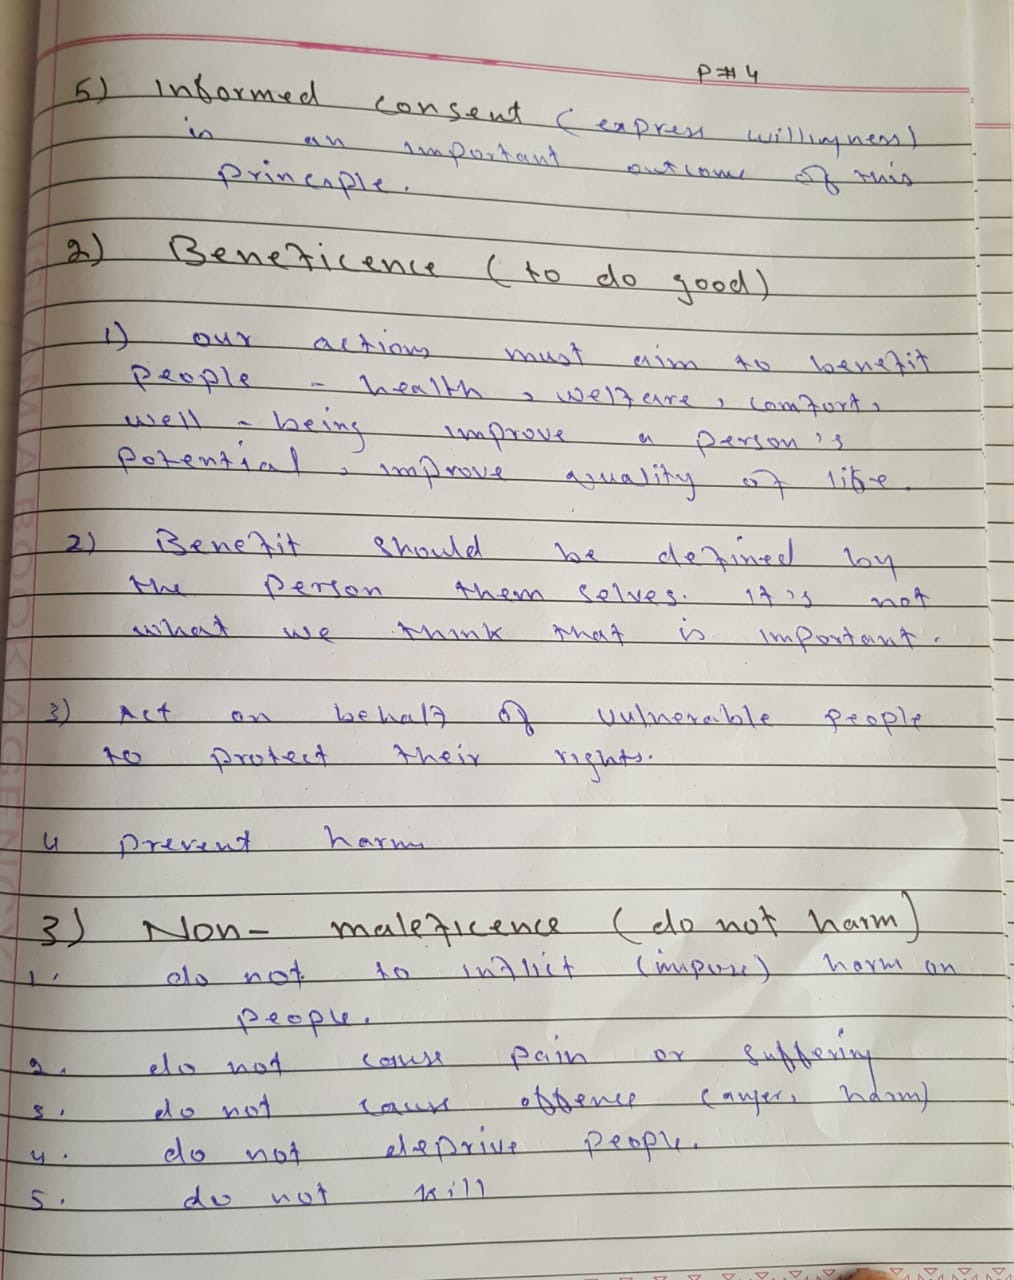 P#4
5) Informed consent (express willingness)
is an important outcome of this
principle.
2) Beneficence (to do good)
1) our actions must aim to benefit
people - health, welfare, comfort,
well-being improve a person's
potential, improve quality of life.
2) Benefit should be defined by
the person them selves. It's not
what we think that is important.
3) Act on behalf of vulnerable people
to protect their rights.
4 prevent harm
3) Non-maleficence (do not harm)
1. do not to inflict (impose) harm on
people.
2. do not cause pain or suffering
3. do not cause offence (anger, harm)
4. do not deprive people.
5. do not kill